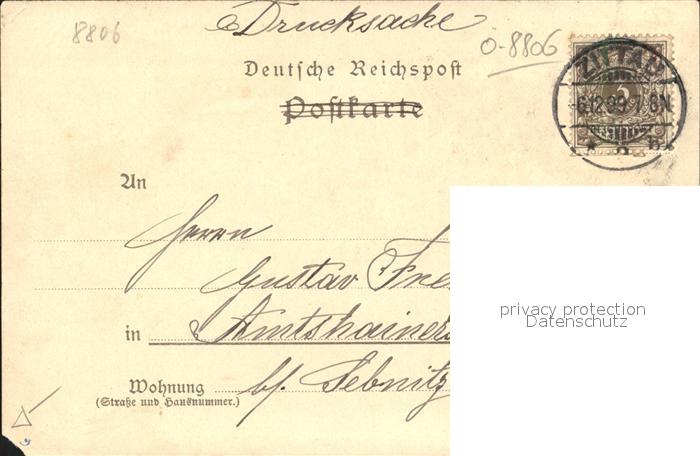 Drucksache
8806
0-8806
Deutsche Reichspost
Postkarte
ZITTAU
6.12.99.7-8N.
* 2 b.
An
Herrn
Gustav Fre
in Amtshainers
Wohnung bf. Sebnitz
(Straße und Hausnummer.)
privacy protection
Datenschutz